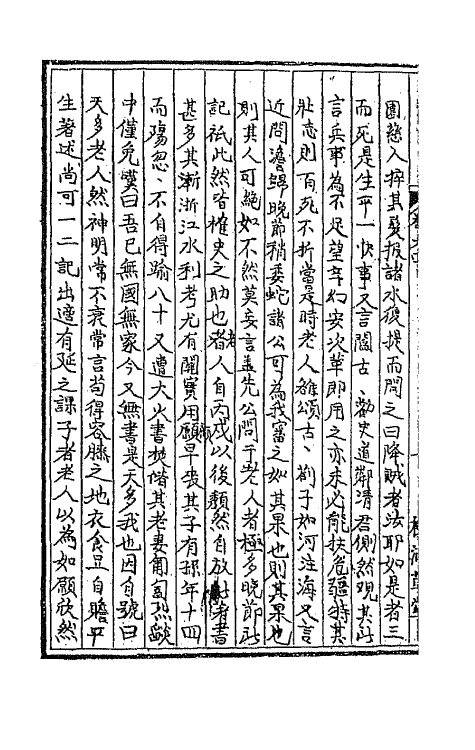 圃慈入捽其髮投諸水復提而問之曰降賊者汝耶如是者三
而死是生平一快事又言閻古古勸史道鄰清君側然觀其所
言兵事為不足望辛幼安次革即用之亦未必能扶危疆特其
壯志則百死不折當是時老人雜頌古古劉子如河注海又言
近聞澹歸晚節稍委蛇諸公可為我審之如其果也則其果也
則其人可絕如不然莫妄言盖先公問于老人者極多晚節所
記祇此然皆稚史之助也老人自丙戌以後頹然自放所著書
甚多其漸浙江水利考尤有關實用顧早喪其子有孫年十四
而殤忽忽不自得踰八十又遭大火書焚偕其老妻匍匐烈燄
中僅免嘆曰吾已無國無家今又無書是天多我也因自號曰
天多老人然神明常不衰常言苟得容膝之地衣食足自贍平
生著述尚可一二記出適有延之課子者老人以為如願欣然